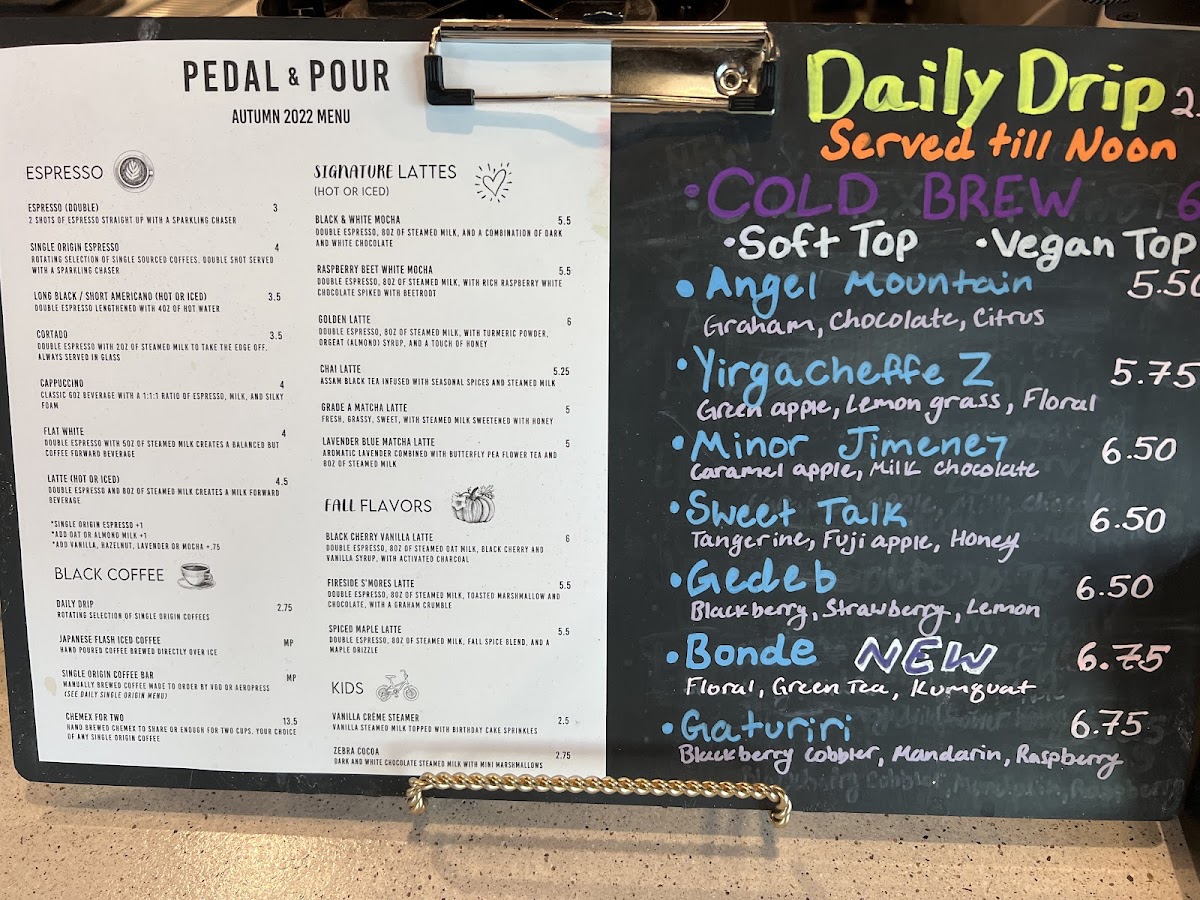 PEDAL & POUR
AUTUMN 2022 MENU
ESPRESSO
ESPRESSO (DOUBLE) 3
2 SHOTS OF ESPRESSO STRAIGHT UP WITH A SPARKLING CHASER
SINGLE ORIGIN ESPRESSO 4
ROTATING SELECTION OF SINGLE SOURCED COFFEES. DOUBLE SHOT SERVED
WITH A SPARKLING CHASER
LONG BLACK / SHORT AMERICANO (HOT OR ICED) 3.5
DOUBLE ESPRESSO LENGTHENED WITH 4OZ OF HOT WATER
CORTADO 3.5
DOUBLE ESPRESSO WITH 2OZ OF STEAMED MILK TO TAKE THE EDGE OFF.
ALWAYS SERVED IN GLASS
CAPPUCCINO 4
CLASSIC 6OZ BEVERAGE WITH A 1:1:1 RATIO OF ESPRESSO, MILK, AND SILKY
FOAM
FLAT WHITE 4
DOUBLE ESPRESSO WITH 5OZ OF STEAMED MILK CREATES A BALANCED BUT
COFFEE FORWARD BEVERAGE
LATTE (HOT OR ICED) 4.5
DOUBLE ESPRESSO AND 8OZ OF STEAMED MILK CREATES A MILK FORWARD
BEVERAGE
*SINGLE ORIGIN ESPRESSO +1
*ADD OAT OR ALMOND MILK +1
*ADD VANILLA, HAZELNUT, LAVENDER OR MOCHA +.75
BLACK COFFEE
DAILY DRIP 2.75
ROTATING SELECTION OF SINGLE ORIGIN COFFEES
JAPANESE FLASH ICED COFFEE MP
HAND POURED COFFEE BREWED DIRECTLY OVER ICE
SINGLE ORIGIN COFFEE BAR MP
MANUALLY BREWED COFFEE MADE TO ORDER BY V60 OR AEROPRESS
(SEE DAILY SINGLE ORIGIN MENU)
CHEMEX FOR TWO 13.5
HAND BREWED CHEMEX TO SHARE OR ENOUGH FOR TWO CUPS. YOUR CHOICE
OF ANY SINGLE ORIGIN COFFEE
SIGNATURE LATTES
(HOT OR ICED)
BLACK & WHITE MOCHA 5.5
DOUBLE ESPRESSO, 8OZ OF STEAMED MILK, AND A COMBINATION OF DARK
AND WHITE CHOCOLATE
RASPBERRY BEET WHITE MOCHA 5.5
DOUBLE ESPRESSO, 8OZ OF STEAMED MILK, WITH RICH RASPBERRY WHITE
CHOCOLATE SPIKED WITH BEETROOT
GOLDEN LATTE 6
DOUBLE ESPRESSO, 8OZ OF STEAMED MILK, WITH TURMERIC POWDER,
ORGEAT (ALMOND) SYRUP, AND A TOUCH OF HONEY
CHAI LATTE 5.25
ASSAM BLACK TEA INFUSED WITH SEASONAL SPICES AND STEAMED MILK
GRADE A MATCHA LATTE 5
FRESH, GRASSY, SWEET, WITH STEAMED MILK SWEETENED WITH HONEY
LAVENDER BLUE MATCHA LATTE 5
AROMATIC LAVENDER COMBINED WITH BUTTERFLY PEA FLOWER TEA AND
8OZ OF STEAMED MILK
FALL FLAVORS
BLACK CHERRY VANILLA LATTE 6
DOUBLE ESPRESSO, 8OZ OF STEAMED OAT MILK, BLACK CHERRY AND
VANILLA SYRUP, WITH ACTIVATED CHARCOAL
FIRESIDE S'MORES LATTE 5.5
DOUBLE ESPRESSO, 8OZ OF STEAMED MILK, TOASTED MARSHMALLOW AND
CHOCOLATE, WITH A GRAHAM CRUMBLE
SPICED MAPLE LATTE 5.5
DOUBLE ESPRESSO, 8OZ OF STEAMED MILK, FALL SPICE BLEND, AND A
MAPLE DRIZZLE
KIDS
VANILLA CRÈME STEAMER 2.5
VANILLA STEAMED MILK TOPPED WITH BIRTHDAY CAKE SPRINKLES
ZEBRA COCOA 2.75
DARK AND WHITE CHOCOLATE STEAMED MILK WITH MINI MARSHMALLOWS
Daily Drip
Served till Noon
•COLD BREW
•Soft Top •Vegan Top
•Angel Mountain 5.50
Graham, Chocolate, Citrus
•Yirgacheffe Z 5.75
Green apple, Lemon grass, Floral
•Minor Jimenez 6.50
Caramel apple, Milk chocolate
•Sweet Talk 6.50
Tangerine, Fuji apple, Honey
•Gedeb 6.50
Blackberry, Strawberry, Lemon
•Bonde NEW 6.75
Floral, Green Tea, Kumquat
•Gaturiri 6.75
Blackberry cobbler, Mandarin, Raspberry